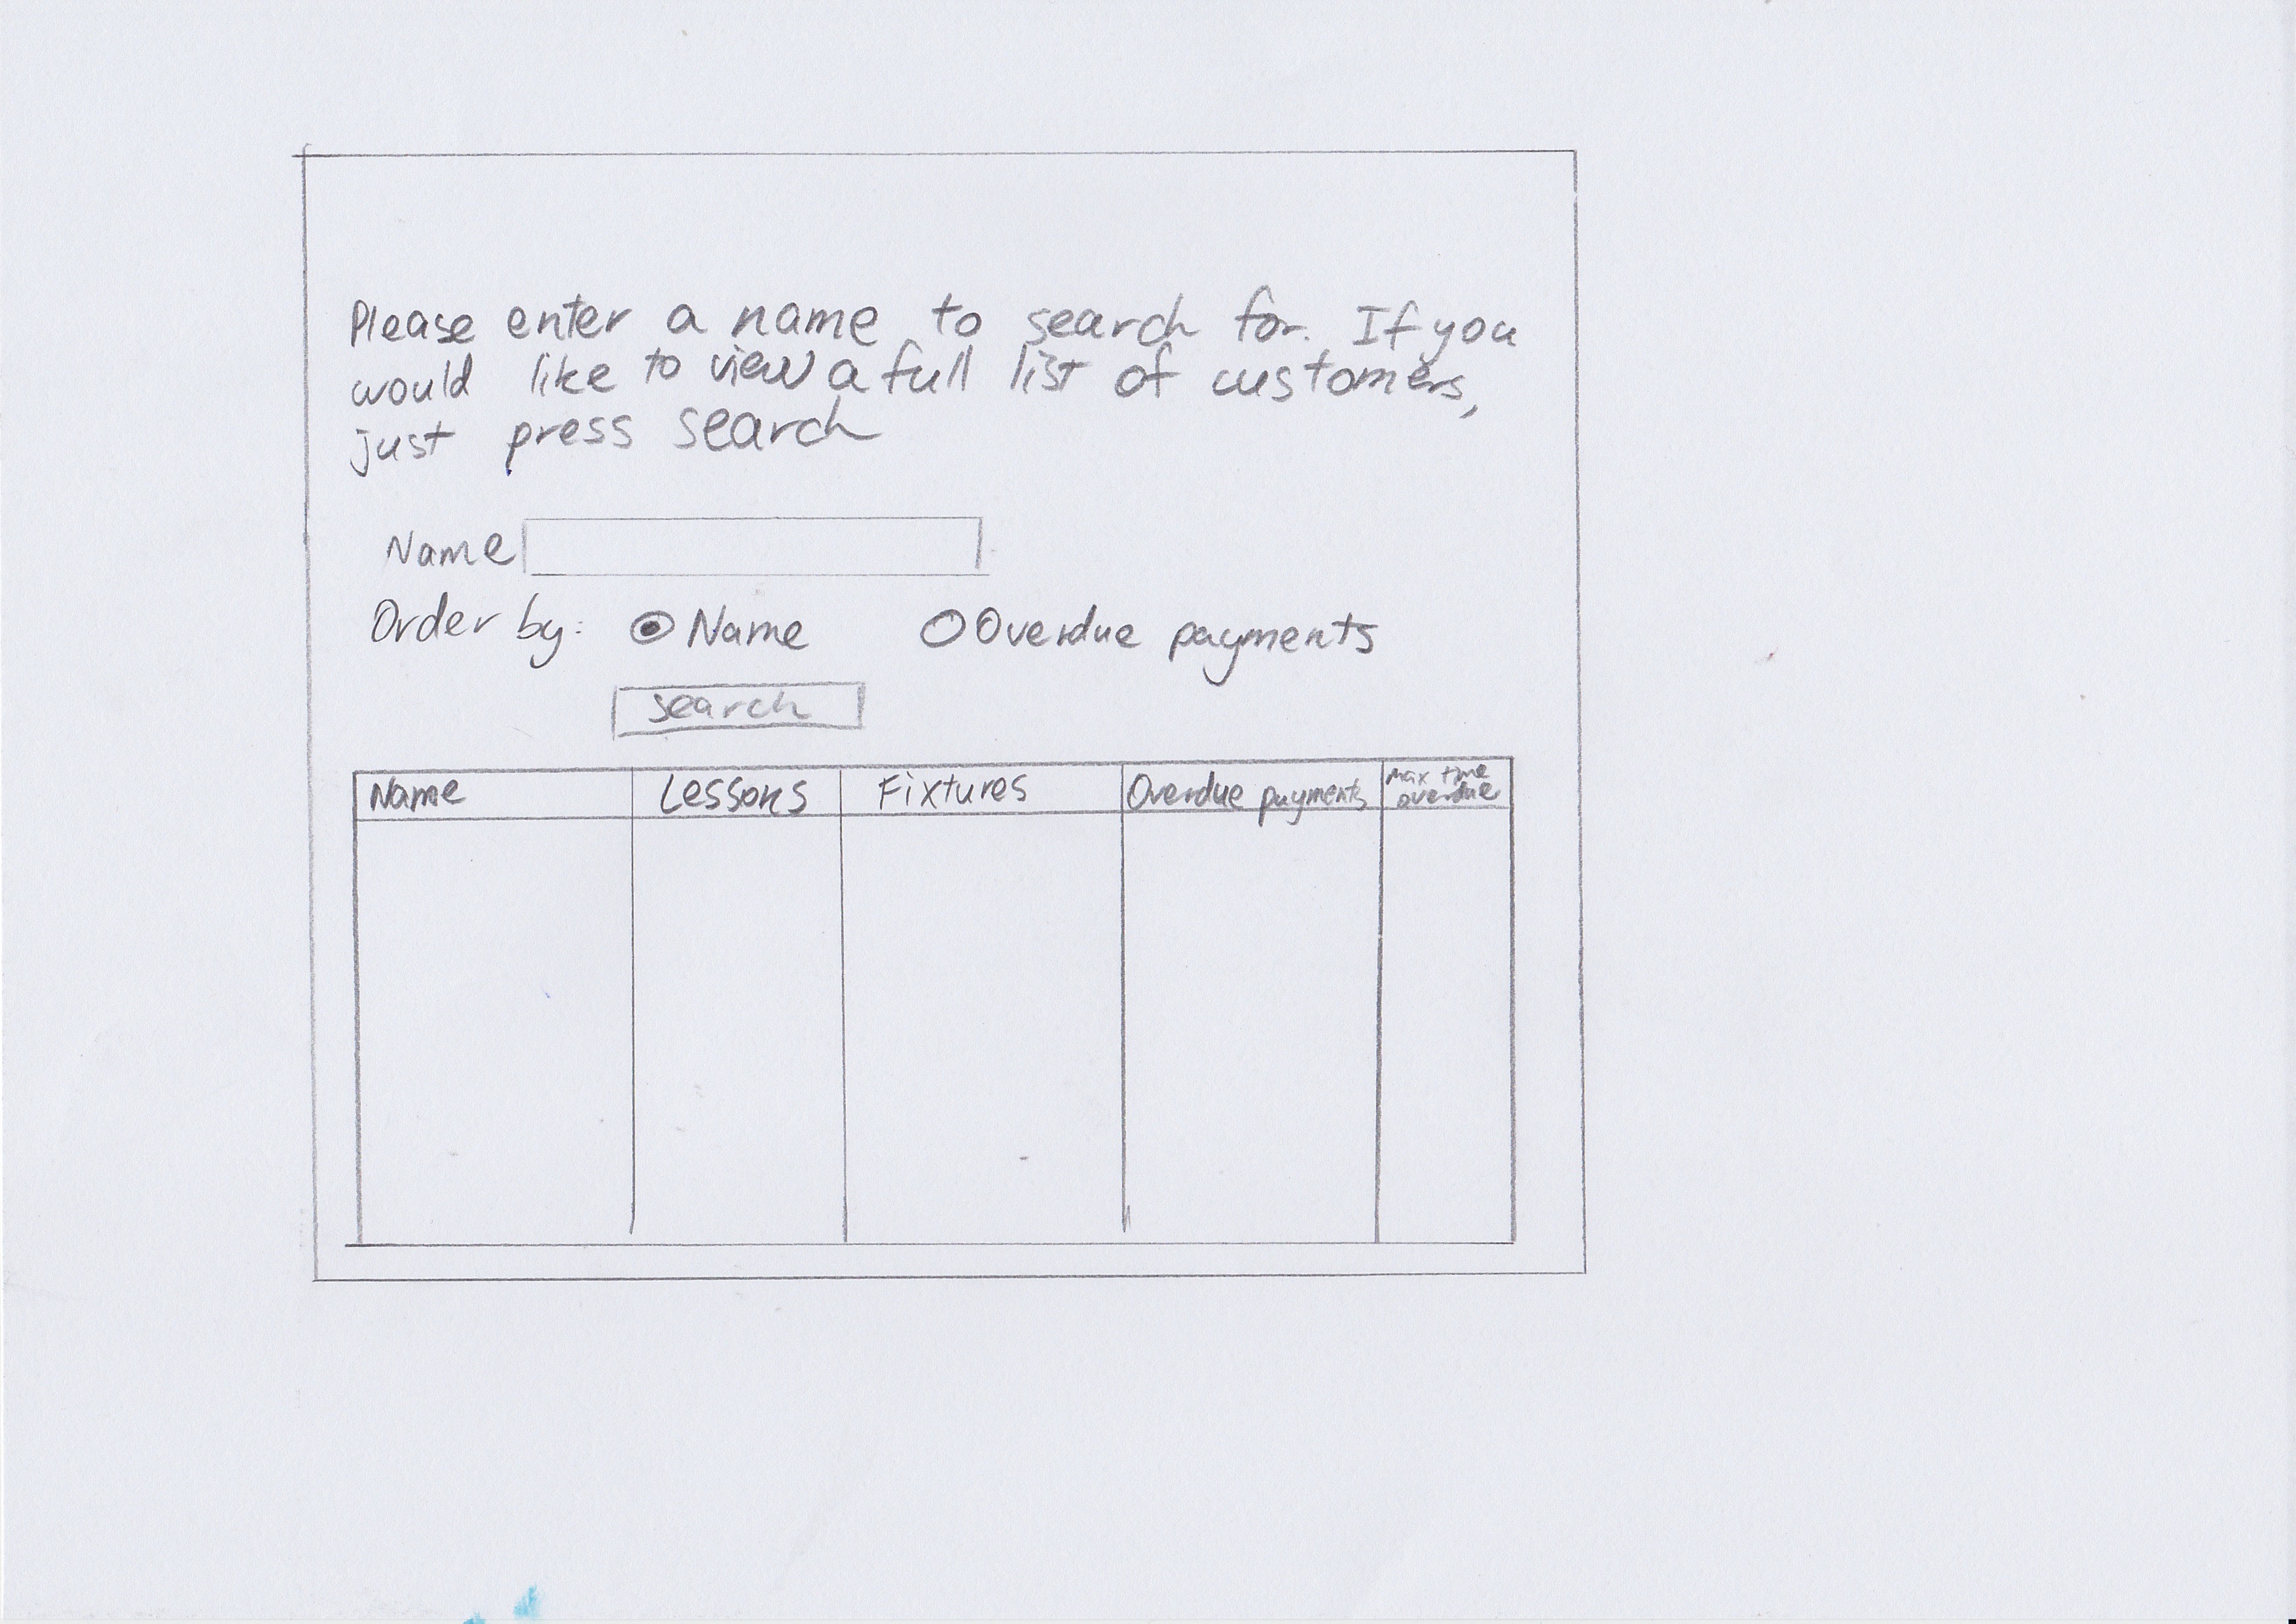 Please enter a name to search for. If you
would like to view a full list of customers,
just press search
Name
Order by: Name Overdue payments
search
Name Lessons Fixtures Overdue payments max time
overdue